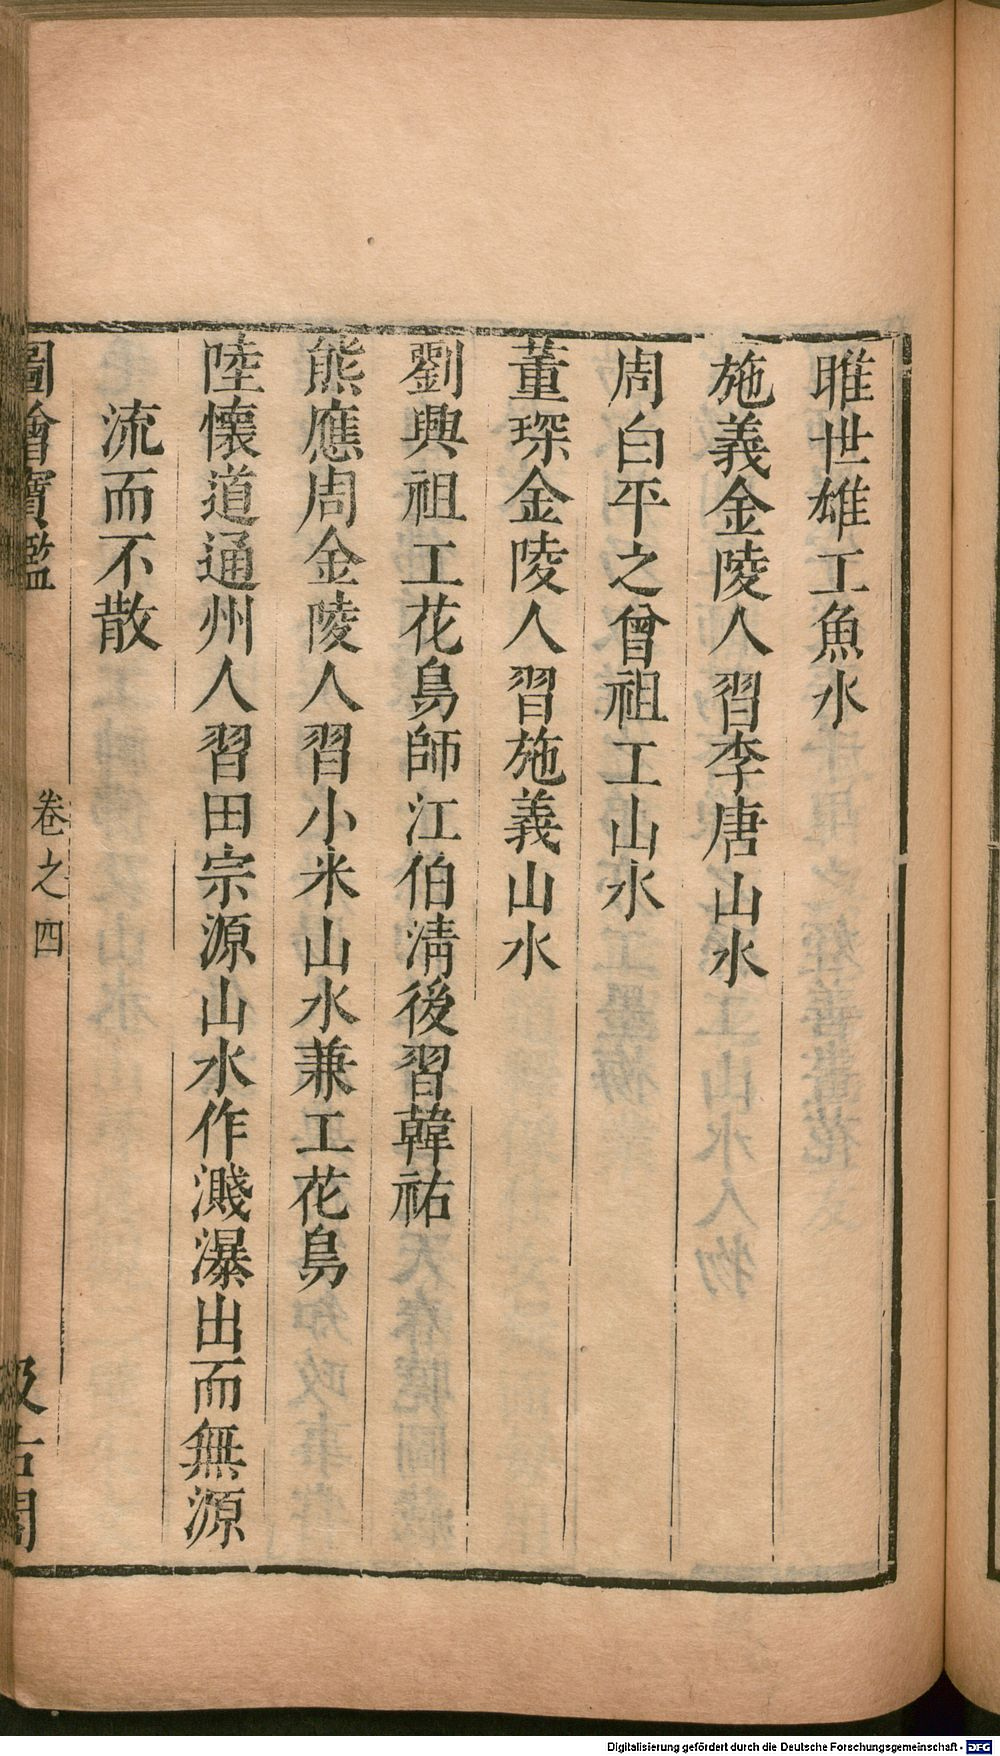 睢世雄工魚水
施義金陵人習李唐山水
周白平之曾祖工山水
董琛金陵人習施義山水
劉興祖工花鳥師江伯淸後習韓祐
熊應周金陵人習小米山水兼工花鳥
陸懷道通州人習田宗源山水作濺瀑出而無源
流而不散
圖繪寶鑑
卷之四
汲古閣
Digitalisierung gefördert durch die Deutsche Forschungsgemeinschaft - DFG